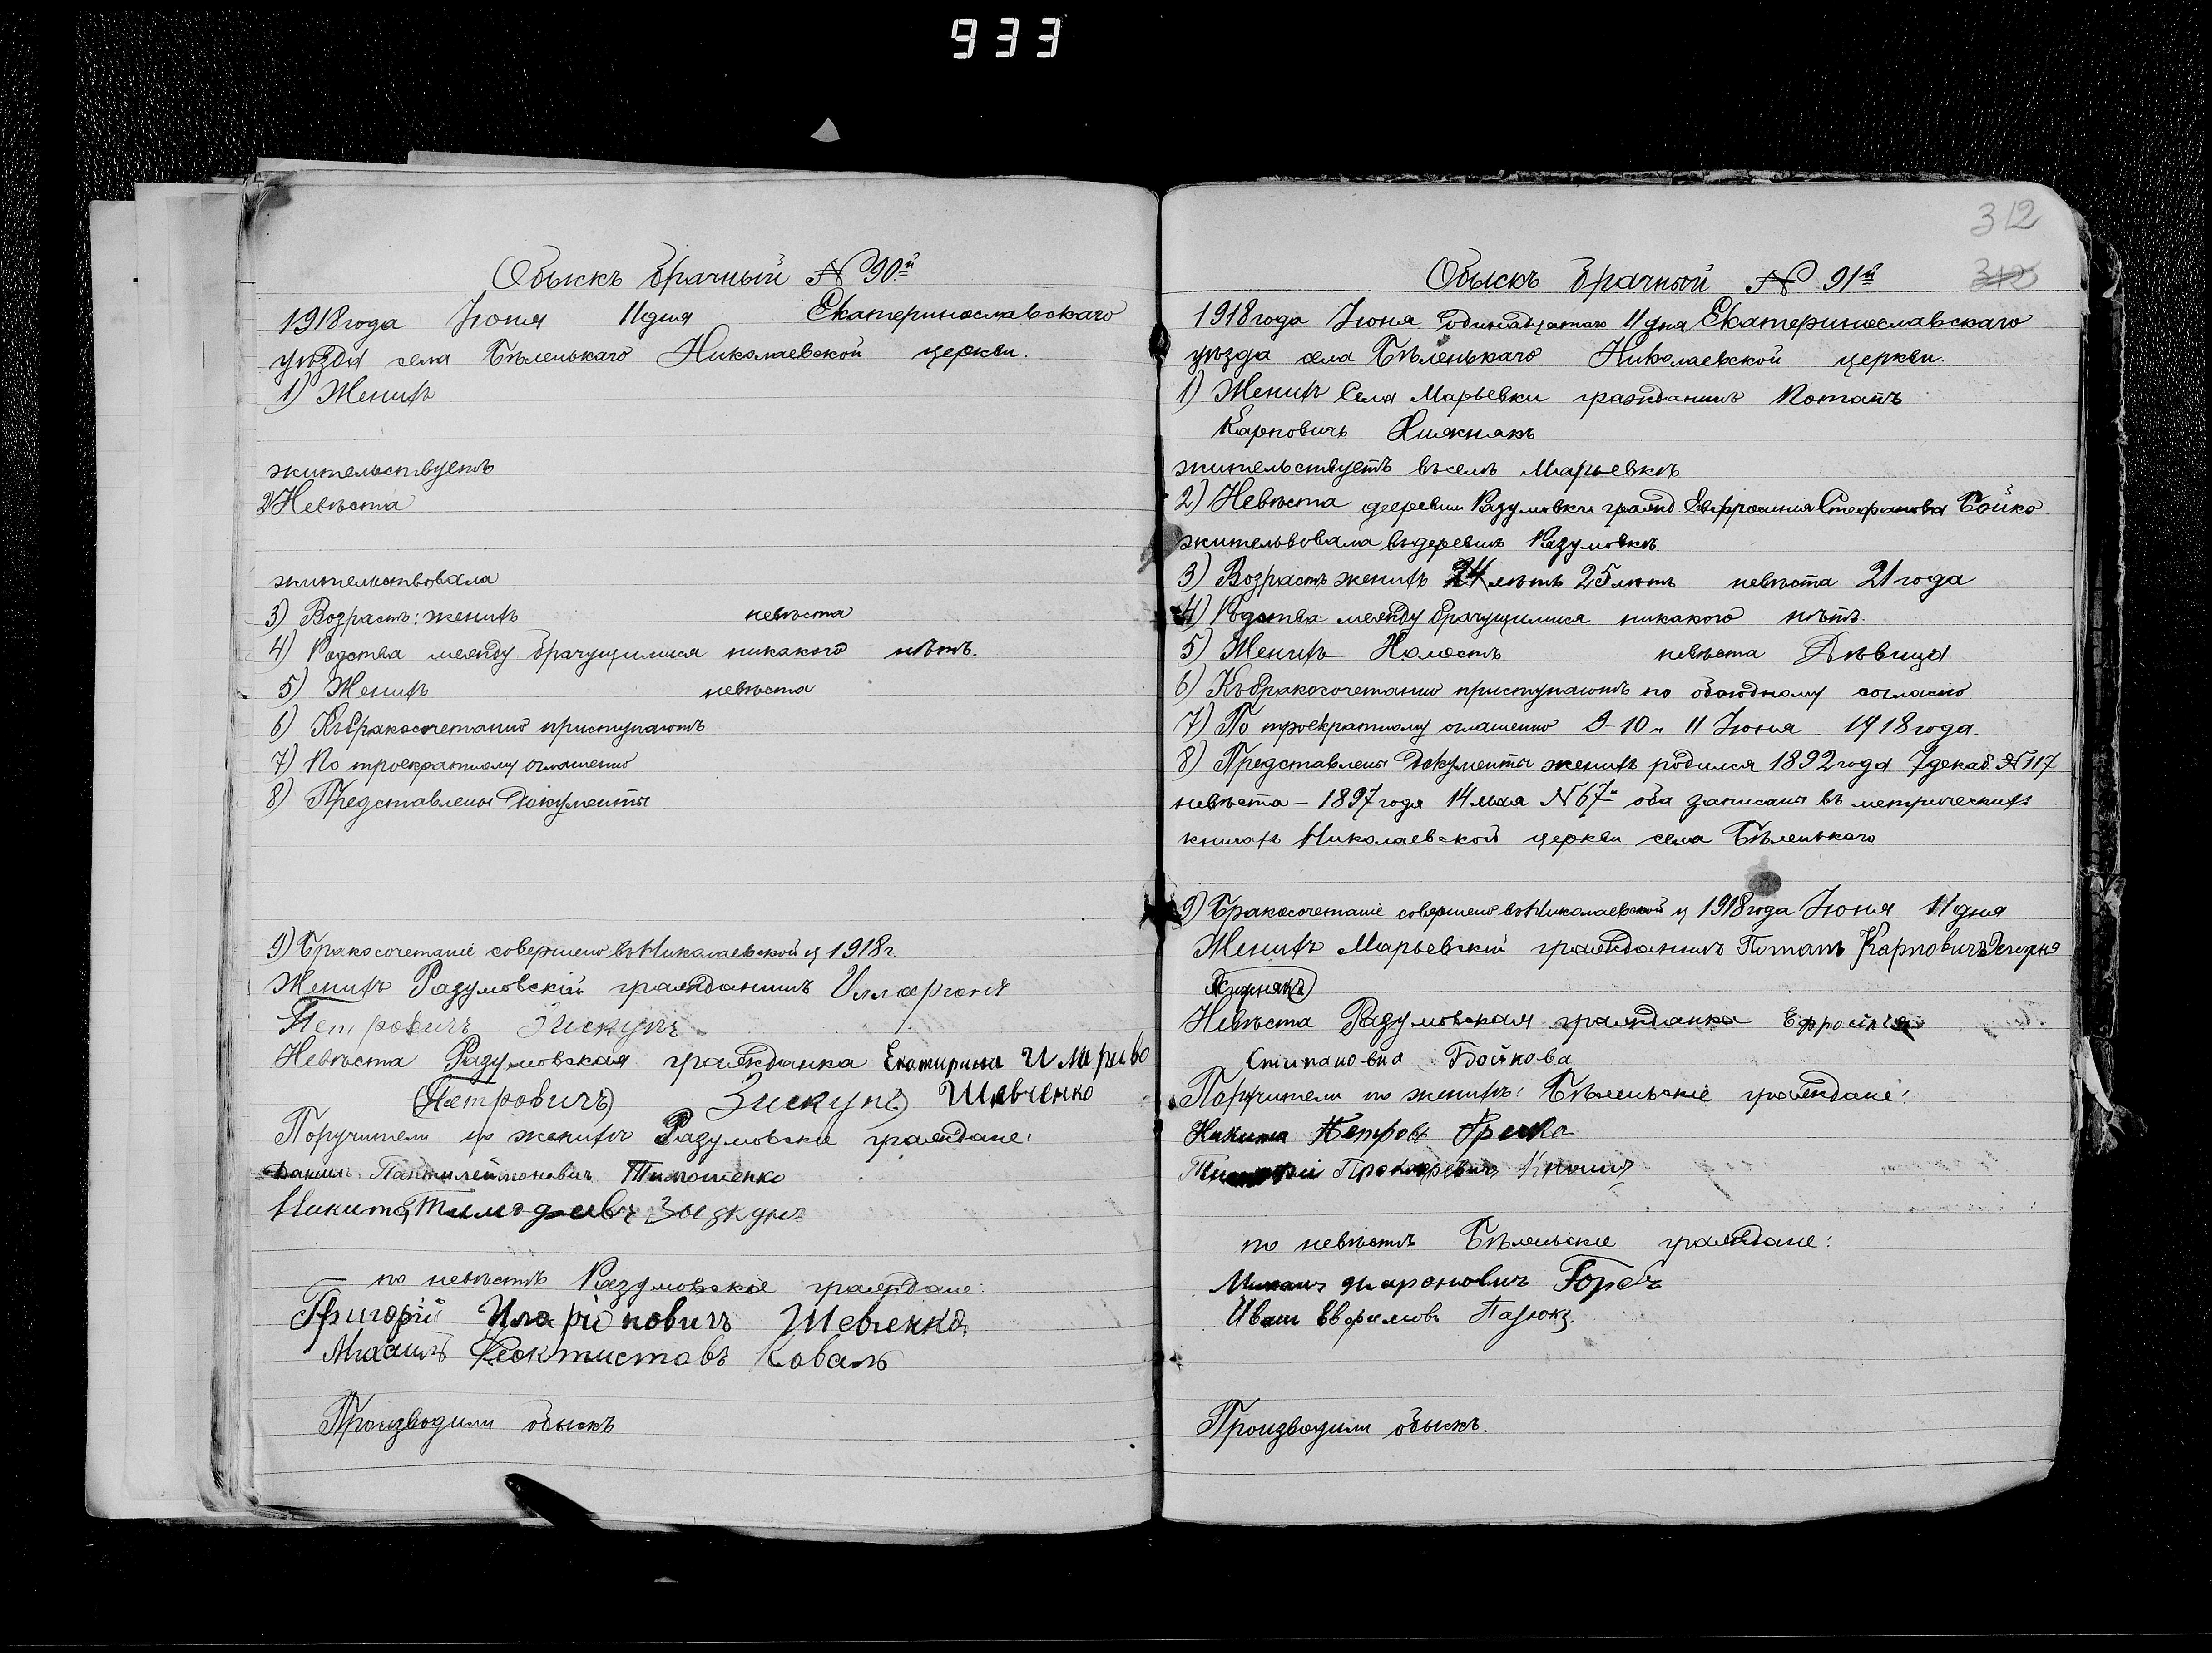 933
Обыскъ брачный № 90й
1918 года Іюня 11 дня Екатеринославскаго
уѣзда села Бѣленькаго Николаевской церкви.
1) Женихъ
жительствуетъ
2) Невѣста
жительствовала
3) Возрастъ: женихъ невѣста
4) Родства между брачущимися никакого нѣтъ.
5) Женихъ невѣста
6) Къ бракосочетанію приступаютъ
7) По троекратному оглашенію
8) Представлены Документы
9) Бракосочетаніе совершено въ Николаевской ц 1918 г.
Женихъ Разумовскій гражданинъ Илларіонъ
Петровичъ Зискунъ
Невѣста Разумовская гражданка Екатирина Илариво
(Петровичъ) Зискунъ) Шевченко
Поручители по женихѣ Разумовскіе граждане:
Данилъ Пантилеймоновичъ Тимошенко
Никита Зыскунъ
по невѣстѣ Разумовскіе граждане:
Григорій Иларіоновичъ Шевченко
Михаилъ Феоктистовъ Коваль
Производили обыскъ
312
Обыскъ брачный № 91й
1918 года Іюня одинадцатаго 11 дня Екатеринославскаго
уѣзда села Бѣленькаго Николаевской церкви.
1) Женихъ Села Марьевки гражданинъ Потапъ
Карповичъ
жительствуетъ въ селѣ Марьевкѣ
2) Невѣста деревни Разумовки гражд. Евфросинія Стефанова Бойко
жительвовала въ деревнѣ Разумовкѣ.
3) Возрастъ женихъ 24 лѣтъ 25 лѣтъ невѣста 21 года
4) Родства между брачущимися никакого нѣтъ.
5) Женихъ Холостъ невѣста Дѣвица
6) Къ бракосочетанію приступаютъ по обоюдному согласію
7) По троекратному оглашенію 9-10 и 11 Іюня 1918 года.
8) Представлены Документы женихъ родился 1892 года 7 декаб. № 117
невѣста – 1897 года 14 мая № 67й оба записаны въ метрическихъ
книгахъ Николаевской церкви села Бѣленькаго
9) Бракосочетаніе совершено въ Николаевской ц 1918 года Іюня 11 дня
Женихъ Марьевскій гражданинъ Потапъ Карповичъ
Невѣста Разумовская гражданка Ефросинія
Стипановна Бойкова
Поручители по женихѣ: Бѣленьскіе граждане:
Никита Петровъ Гречка
Прокофіевичъ
по невѣстѣ Бѣленьскіе граждане:
Горбъ
Иванъ Ефимовъ Пазюкъ
Производили обыскъ.